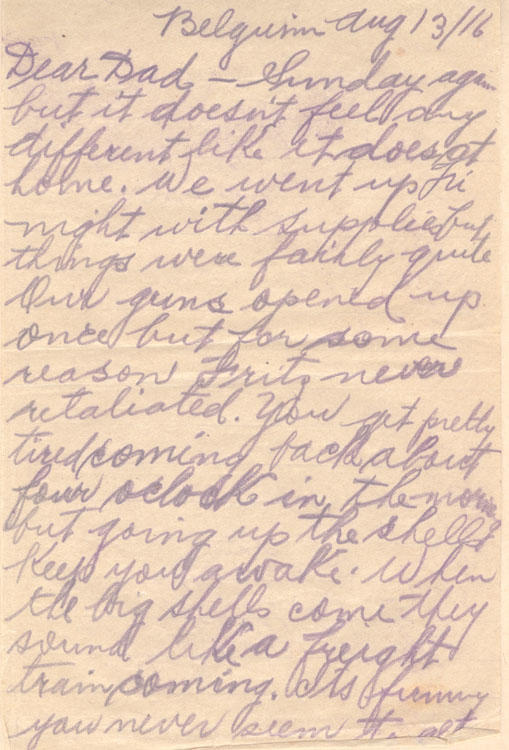 Belguim Aug 13/16
Dear Dad – Sunday again
but it doesn't feel any
different like it does at
home. We went up Fri
night with supplies but
things were fairly quite
Our guns opened up
once but for some
reason Fritz never
retaliated. You get pretty
tired coming back about
four oclock in the morning
but going up the shells
keep you awake. When
the big shells come they
sound like a freight
train coming. Its funny
you never seem to get